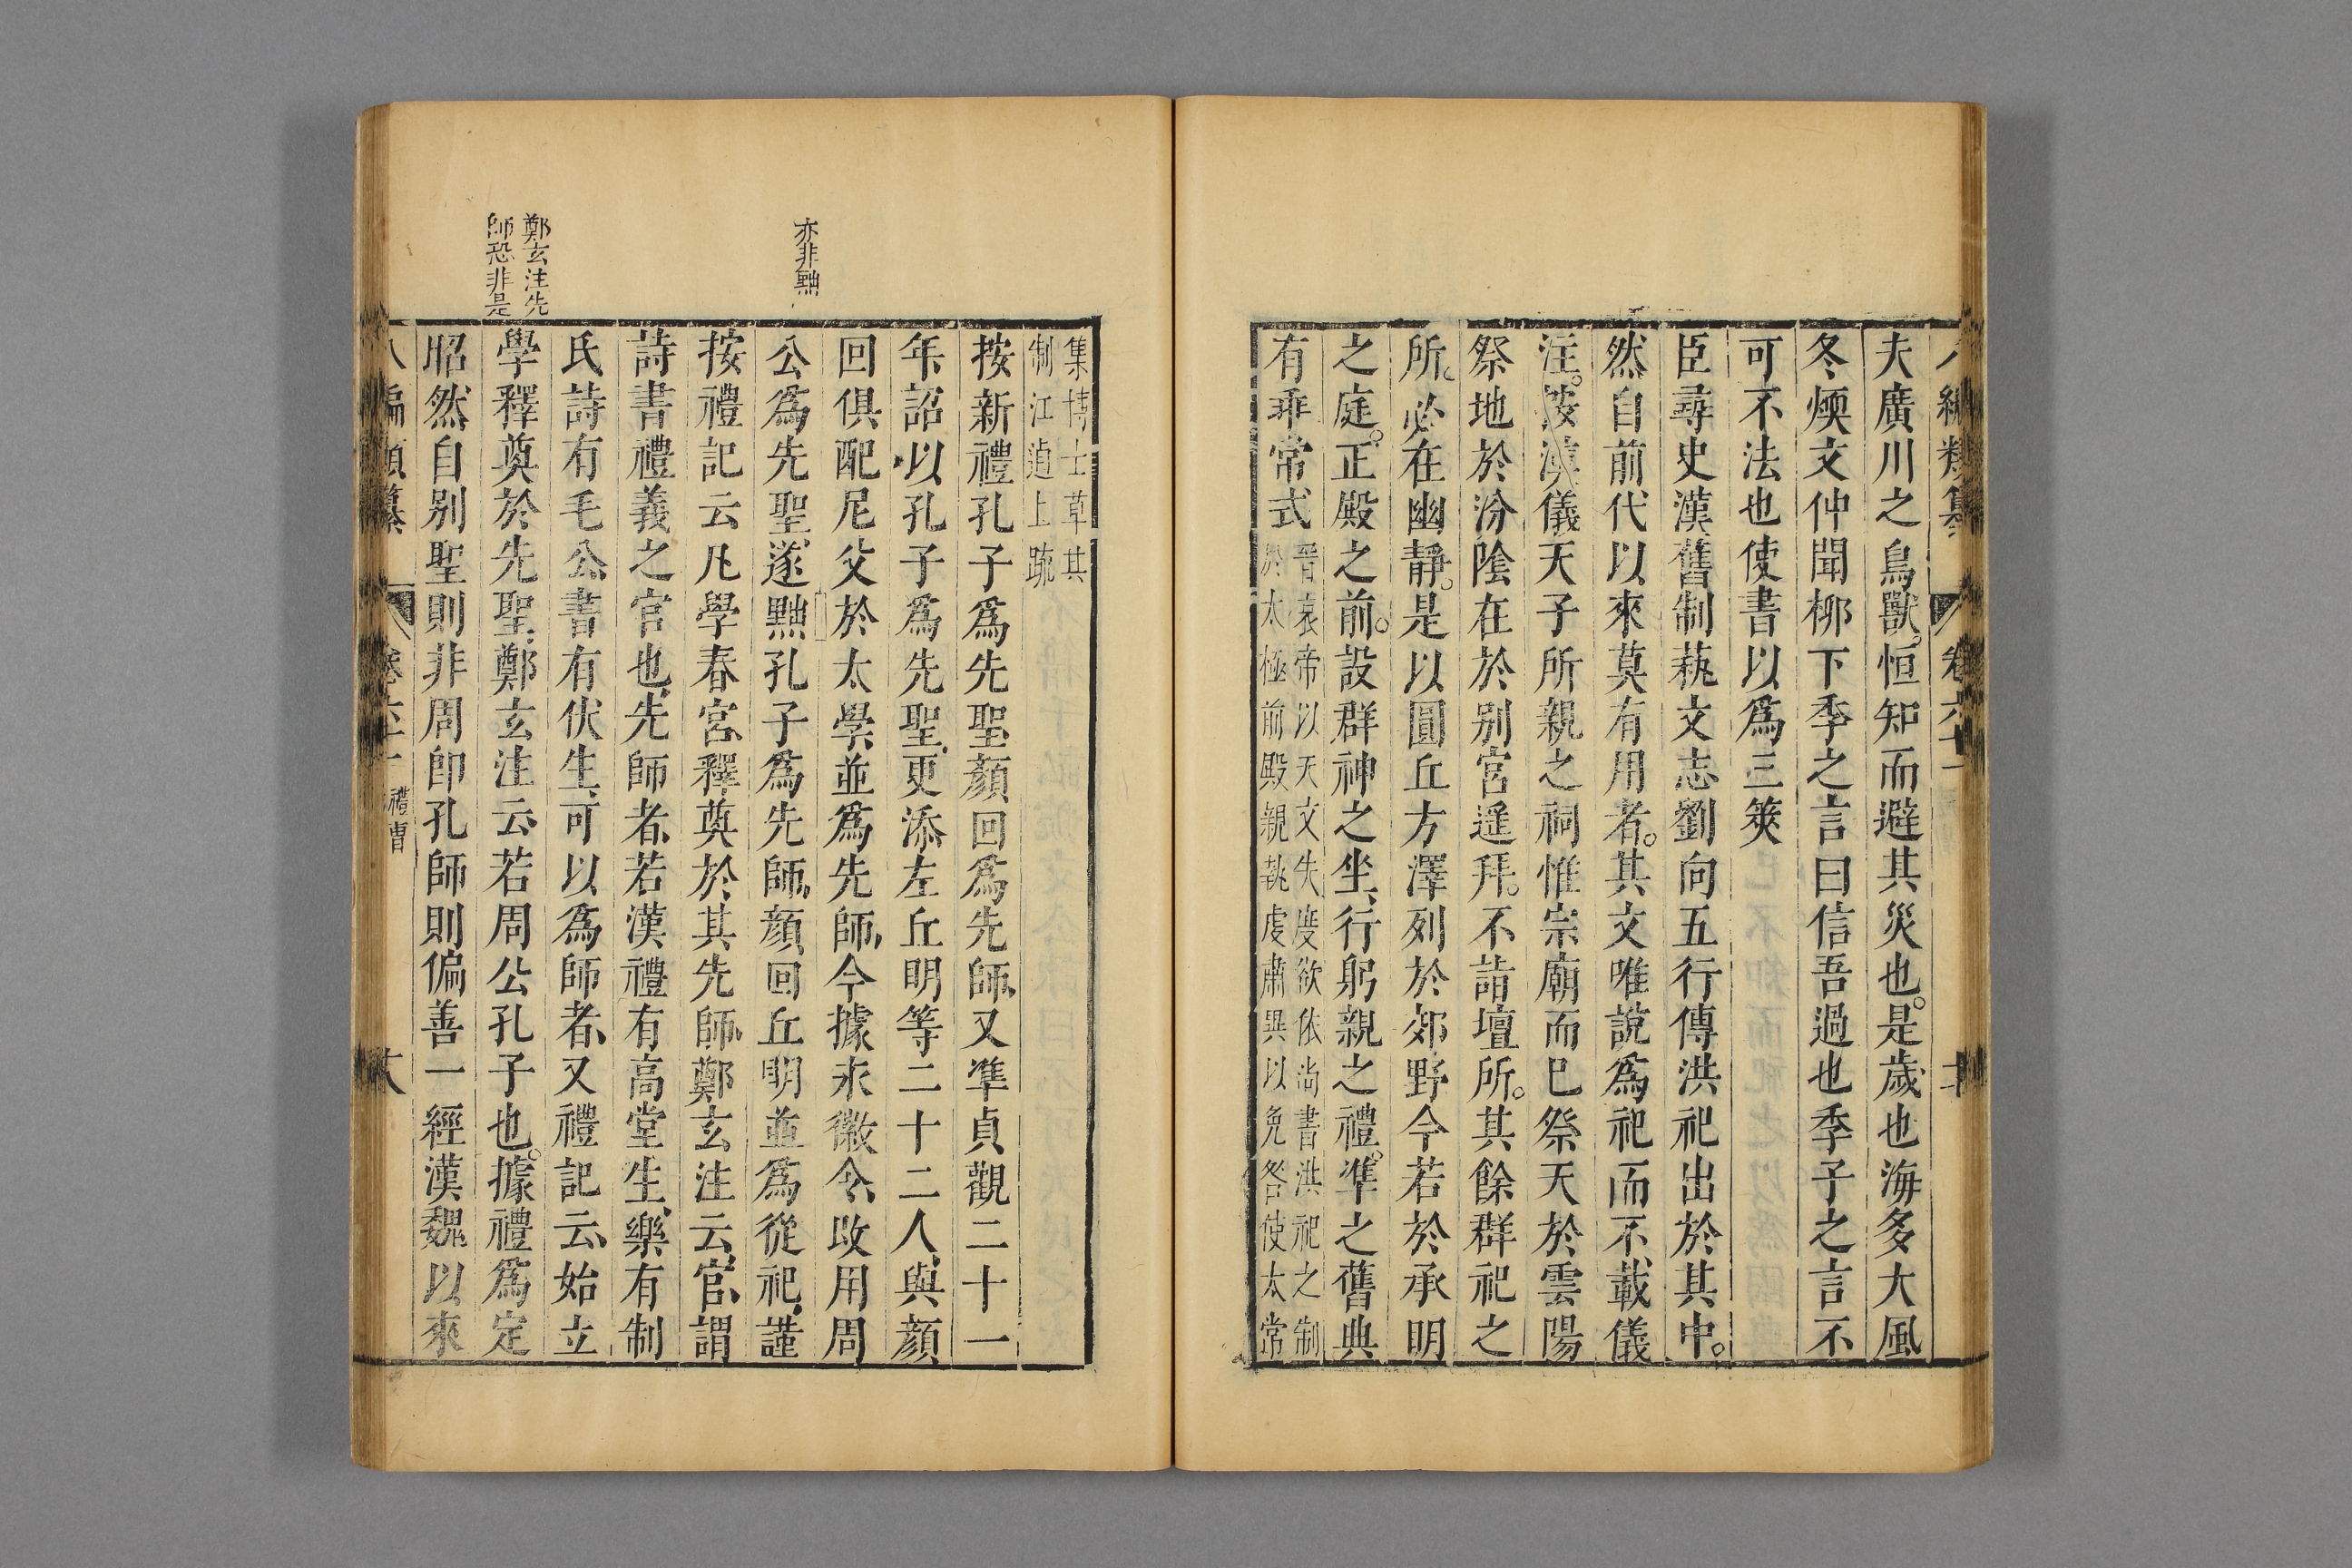 八編類纂 卷六十一
夫廣川之鳥獸。恒知而避其災也。是歲也海多大風
冬煗文仲聞柳下季之言曰信吾過也季子之言不
可不法也使書以爲三筴
臣尋史漢舊制蓺文志劉向五行傳洪祀出於其中。
然自前代以來莫有用者。其文唯說爲祀而不載儀
注。按漢儀天子所親之祠惟宗廟而巳祭天於雲陽
祭地於汾陰在於別宮遥拜。不詣壇所。其餘群祀之
所。必在幽靜。是以圓丘方澤列於郊野今若於承明
之庭。正殿之前。設群神之坐、行躬親之禮。準之舊典
有乖常式
晉哀帝以天文失度欲依尚書洪祀之制
於太極前殿親執虔肅異以免咎使太常
集博士草其
制江逌上疏
按新禮孔子爲先聖顏回爲先師、又準貞觀二十一
年詔以孔子爲先聖、更添左丘明等二十二人、與顏
回俱配尼父於太學、並爲先師、今據永徽令、改用周
公爲先聖、遂黜孔子爲先師、顏回丘明並爲從祀、謹
按禮記云凡學春官、釋奠於其先師、鄭玄注云、官、謂
詩書禮義之官也、先師者、若漢禮有高堂生、樂有制
氏詩有毛公、書有伏生、可以爲師者、又禮記云、始立
學釋奠於先聖、鄭玄注云、若周公孔子也。據禮爲定
昭然自别聖則非周卽孔師則偏善一經漢魏以來
亦非黜
鄭玄注先
師恐非是
八編類纂 卷六十一 禮曹 十八